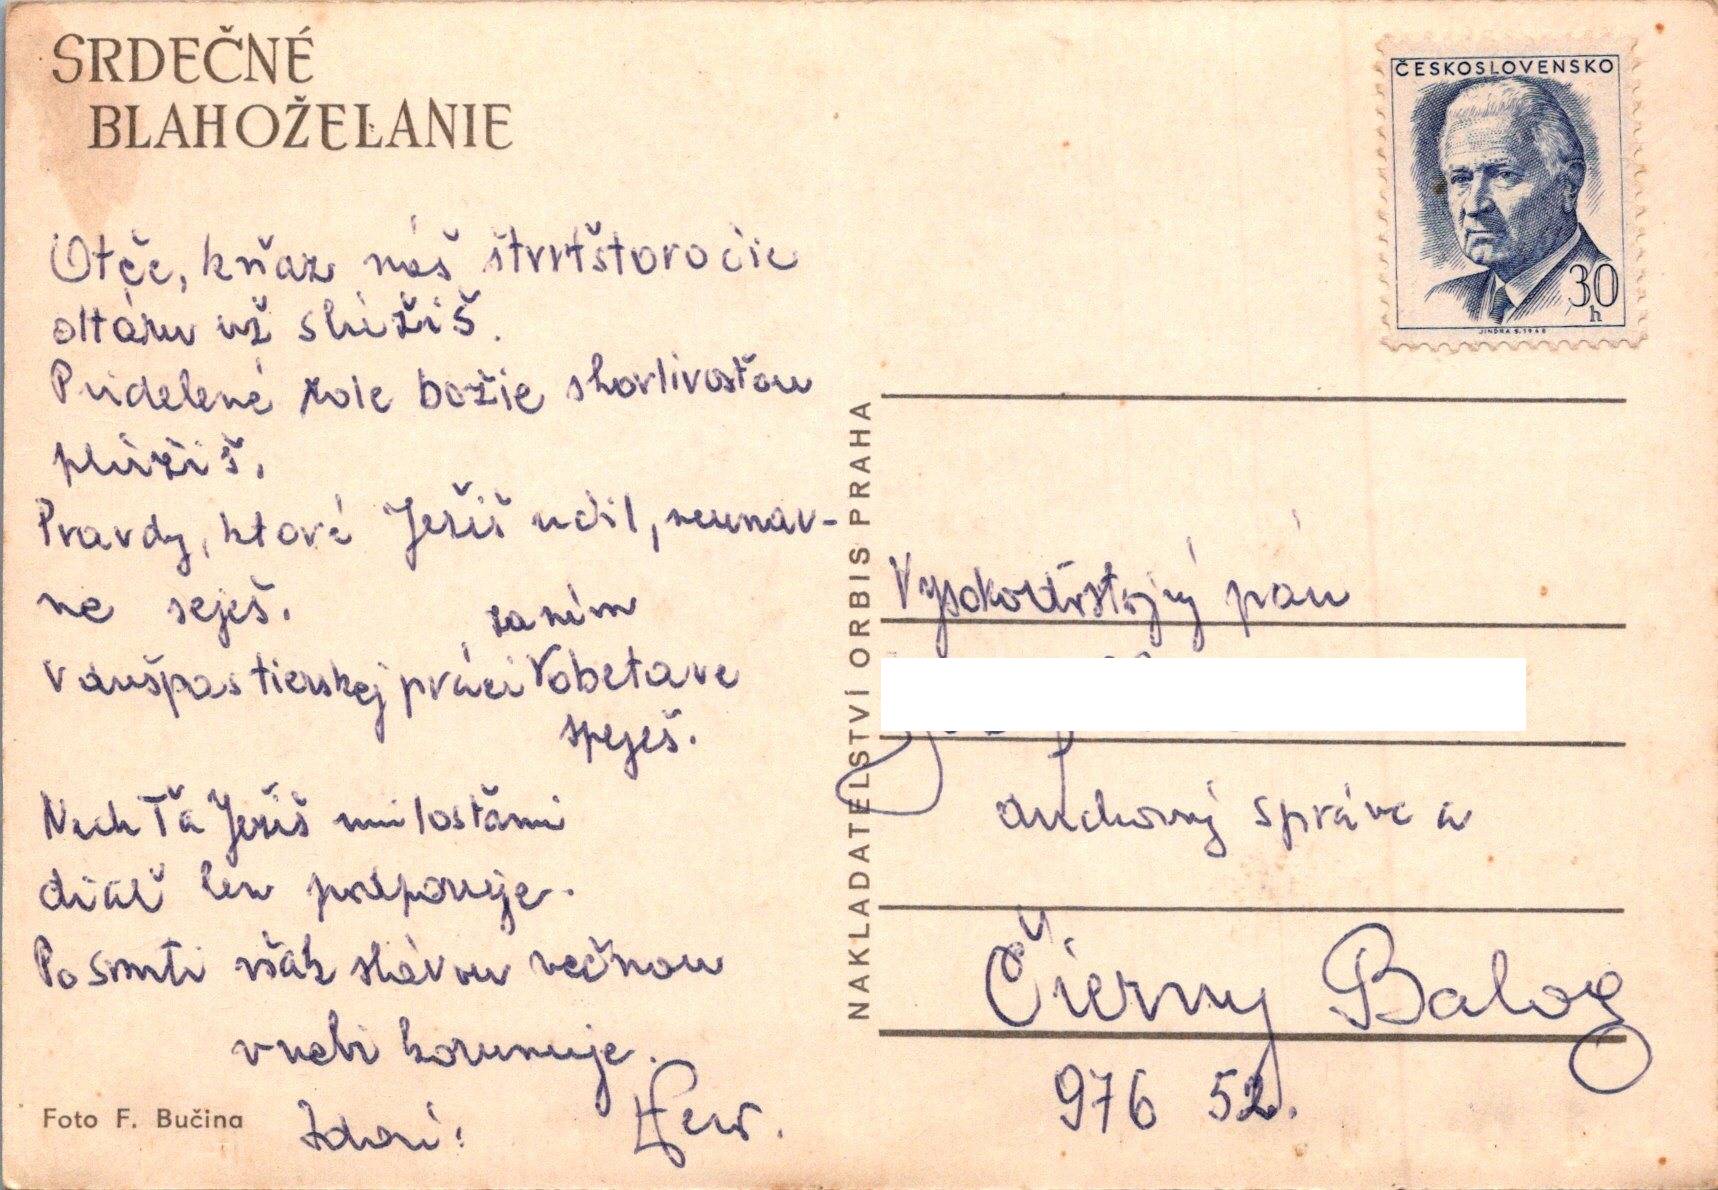 SRDEČNÉ
BLAHOŽELANIE
Otče, kňaz náš štvrťstoročie
oltáru už slúžiš.
Pridelené role božie s horlivosťou
plúžiš.
Pravdy, ktoré Ježiš učil, neunav-
ne seješ.
za ním
V dušpastierskej práci obetave
speješ.
Nech Ťa Ježiš milosťami
diaľ len podporuje.
Po smrti však slávou večnou
v nebi korunuje.
Zdraví:
Foto F. Bučina
NAKLADATELSTVÍ ORBIS PRAHA
ČESKOSLOVENSKO
30
h
JINDRA S. 1968
Vysokodôstojný pán
duchovný správca
Čierny Balog
976 52.